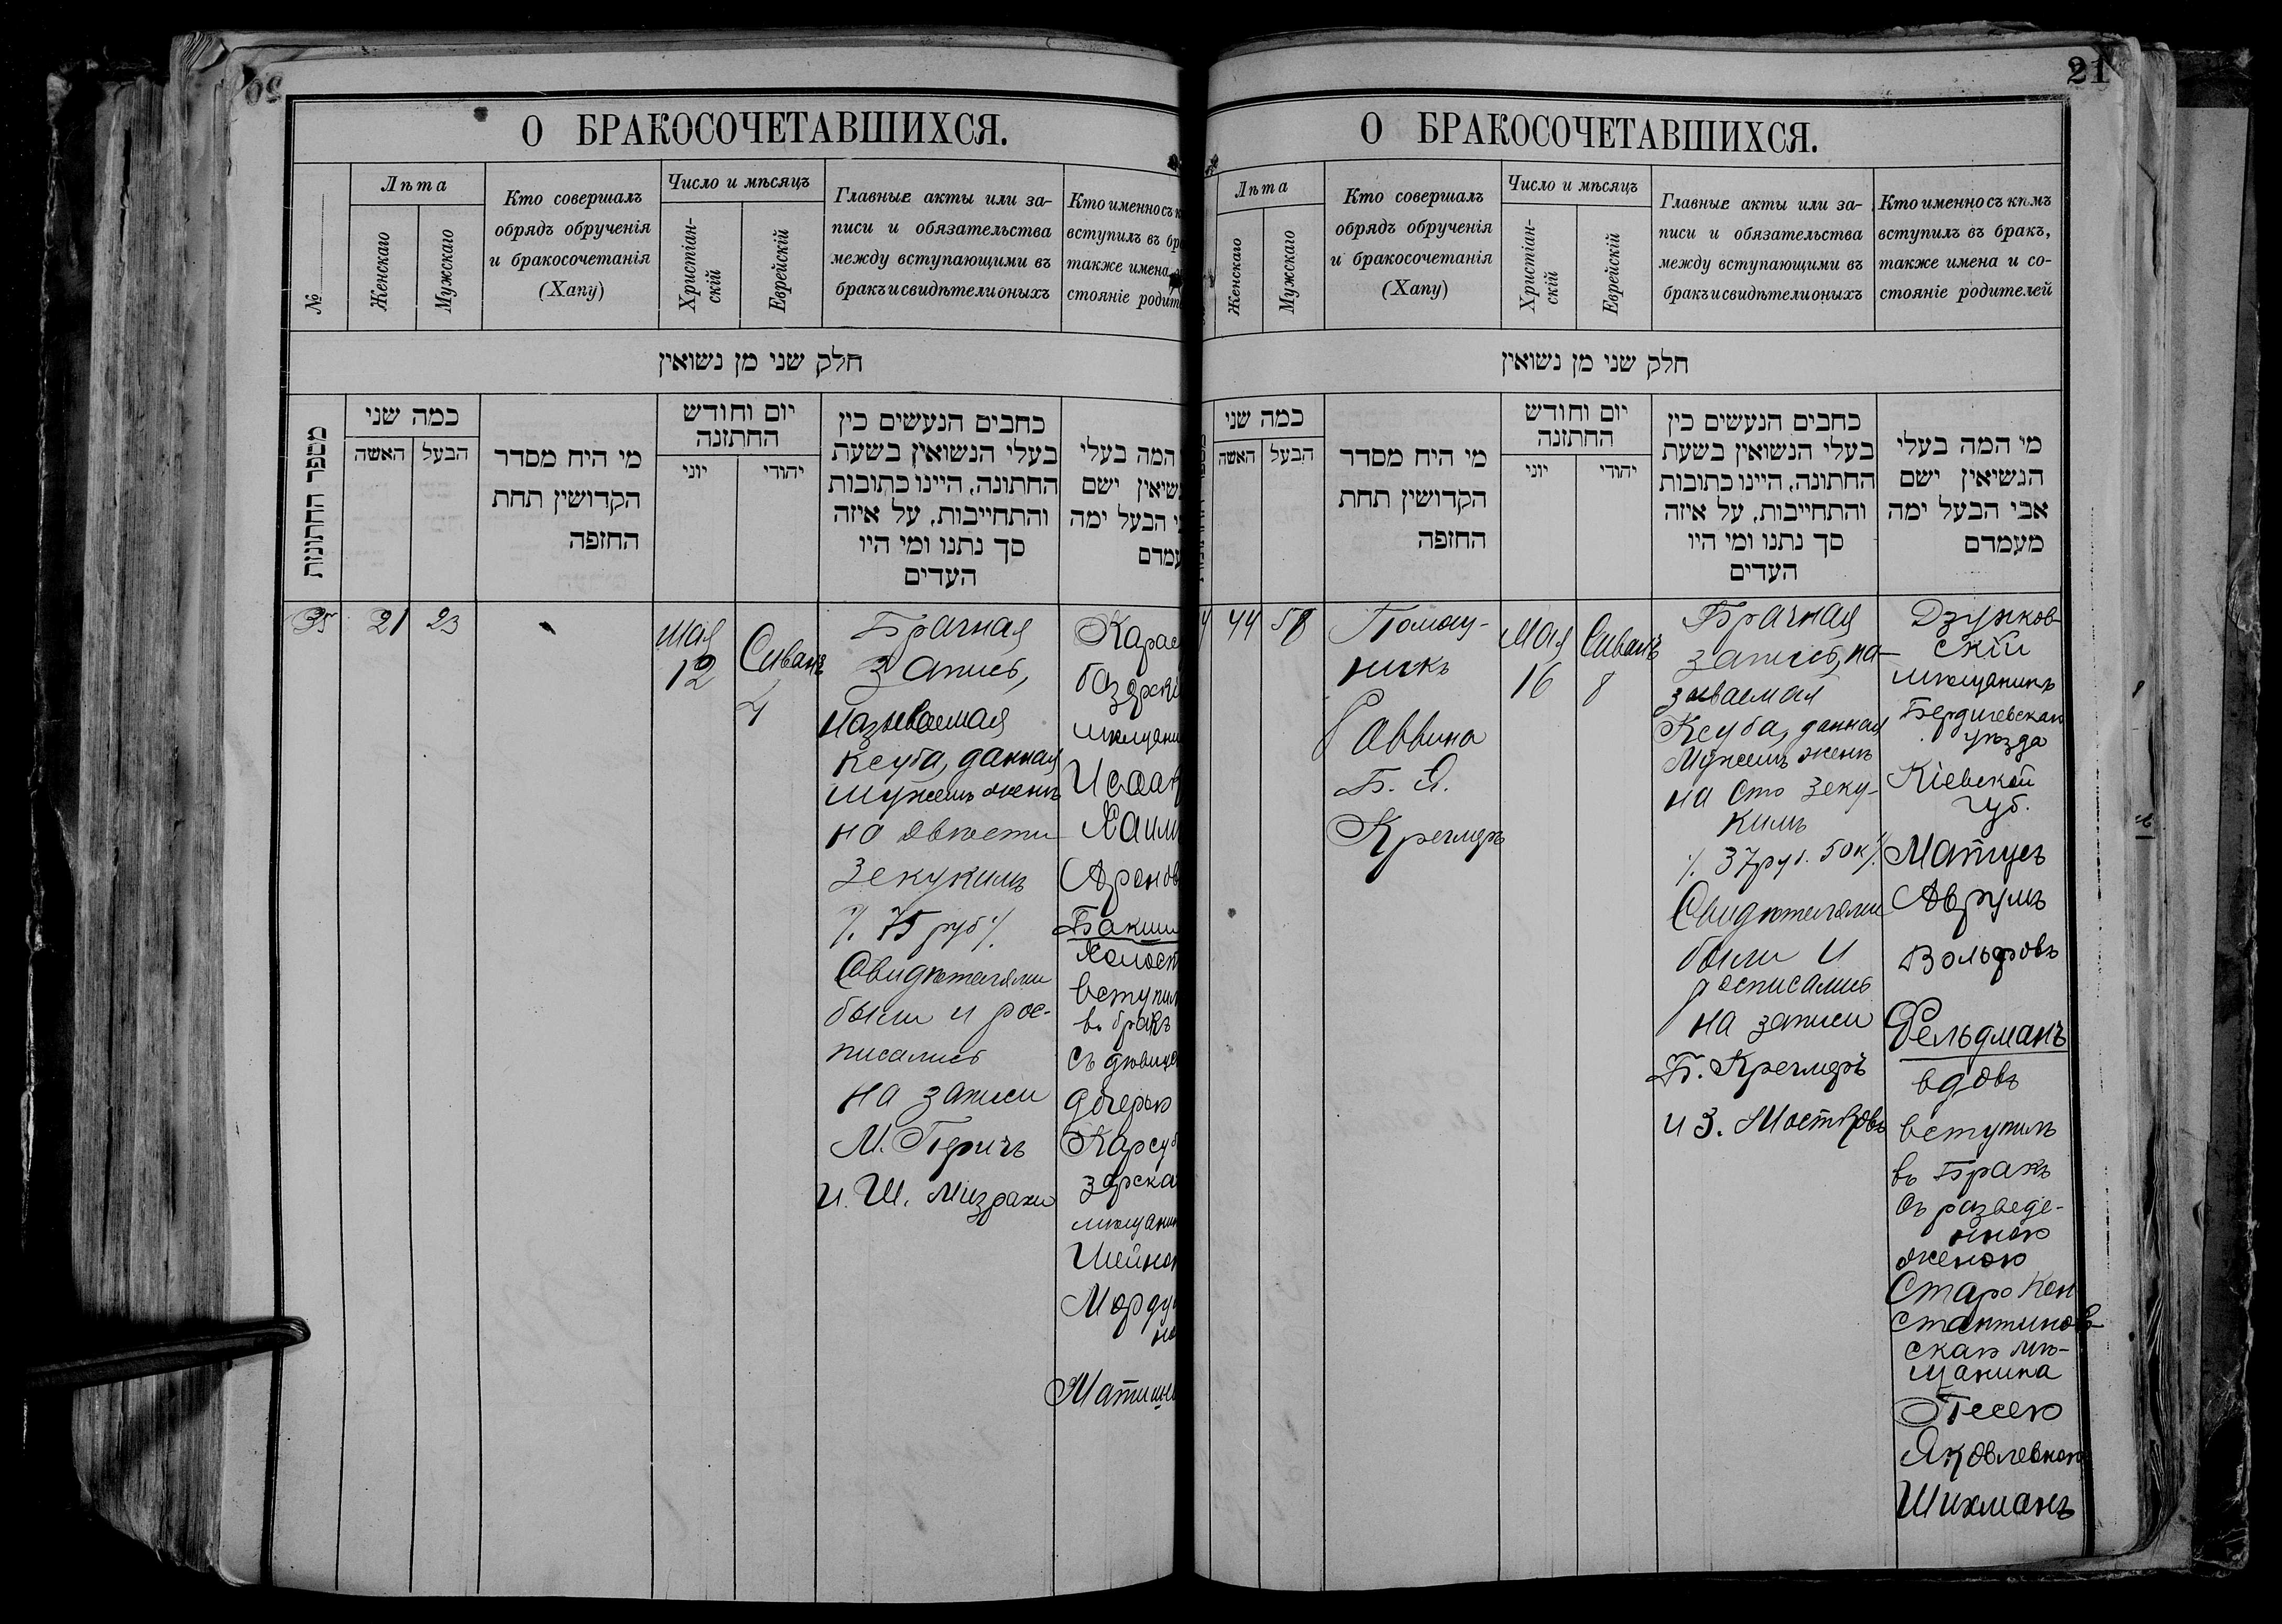 21
О БРАКОСОЧЕТАВШИХСЯ.
№
Лѣта
Женскаго
Мужскаго
Кто совершалъ
обрядъ обрученія
и бракосочетанія
(Хапу)
Число и мѣсяцъ
Христіан-
скій
Еврейскій
Главные акты или за-
писи и обязательства
между вступающими въ
бракъ и свидѣтели оныхъ
Кто именно съ к
вступилъ въ бр
также имена
стояніе родит
חלק שני מן נשואין
מספר החתונות
כמה שני
האשה
הבעל
מי היח מסדר
הקדושין תחת
החזפה
יום וחודש
החתזנה
יוני
יהודי
כחבים הנעשים כין
בעלי הנשואין בשעת
החתונה, היינו כתובות
והתחייבות, על איזה
סך נתנו ומי היו
העדים
המה בעלי
שיאין ישם
הבעל ימה
עמדם
35
21
23
Мая
12
Сиванъ
4
Брачная
запись,
называемая
Ксуба, данная
Мужемъ женѣ
на двѣсти
Зекукимъ
٪ 75 руб ٪
Свидѣтелями
были и рос-
писались
на записи
М. Перичъ
и Ш. Мизрахи
Карас
базарскі
мѣщани
Исаак
Хаим
Аронов
Бакши
Холост
вступил
въ бракъ
съ дѣвице
дочерью
Карсуб
зарска
мѣщанин
Шейно
Морду
но
О БРАКОСОЧЕТАВШИХСЯ.
Лѣта
Женскаго
Мужскаго
Кто совершалъ
обрядъ обрученія
и бракосочетанія
(Хапу)
Число и мѣсяцъ
Христіан-
скій
Еврейскій
Главные акты или за-
писи и обязательства
между вступающими въ
бракъ и свидѣтели оныхъ
Кто именно съ кѣмъ
вступилъ въ бракъ,
также имена и со-
стояніе родителей
חלק שני מן נשואין
כמה שני
האשה
הבעל
מי היח מסדר
הקדושין תחת
החזפה
יום וחודש
החתזנה
יוני
יהודי
כחבים הנעשים כין
בעלי הנשואין בשעת
החתונה, היינו כתובות
והתחייבות, על איזה
סך נתנו ומי היו
העדים
מי המה בעלי
הנשיאין ישם
אבי הבעל ימה
מעמדם
44
58
Помощ-
никъ
Раввина
Б. Я.
Кремеръ
Мая
16
Сиванъ
8
Брачная
запись, на-
зываемая
Ксуба, данная
Мужемъ женѣ
на Сто Зеку-
кимъ
٪ 37 руб. 50 к ٪
Свидѣтелями
были и
росписались
на записи
Б. Кремеръ
и З. Мостковъ
Дзунков-
скій
мѣщанинъ
Бердичевскаго
уѣзда
Кіевской
губ.
Матусъ
Аврумъ
Вольфовъ
Фельдманъ
вдовъ
вступилъ
въ Бракъ
съ разведе-
нною
женою
Старо Кон
стантинов-
скаго мѣ-
щанина
Песею
Яковлевною
Шихманъ